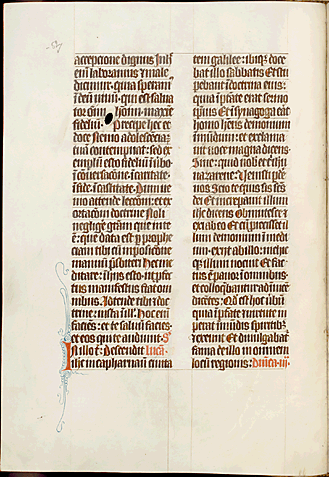 accepcione dignus In hoc
enim laboramus et male
dicimur quia speramus
in deum vivum qui est salva
tor omnium hominum maxime
fidelium Precipe hec et
doce Nemo adolescenciam
tuam contempnat sed ex
emplum esto fidelium in verbo
in conversacione in caritate in
fide in castitate Dum ve
nio attende lectioni et ex
ortacioni doctrine Noli
negligere gratiam que in te
est que data est tibi per prophe
ciam cum imposicione
manuum presbiteri Hec me
ditare in hiis esto ut profec
tus tuus manifestus sit om
nibus Attende tibi et doc
trine insta in illis Hoc enim
faciens et te salvum facies
et eos qui te audiunt
In illo tempore Descendit Luca
ihesus in capharnaum civita
tem galilee ibique doce
bat illos sabbatis Et stu
pebant in doctrina eius
quia in potestate erat sermo
ipsius Et in synagoga erat
homo habens demonium
inmundum et exclama
vit voce magna dicens
Sine quid nobis et tibi ihesu
nazarene Venisti perdere
nos Scio te quis sis sanctus
dei Et increpavit illum
ihesus dicens Obmutesce et
exi ab eo Et cum proiecisset il
lum demonium in medi
um exiit ab illo nichil
que illum nocuit Et fac
tus est pavor in omnibus
et colloquebantur ad invicem
dicentes Quod est hoc verbum
quia in potestate et virtute im
perat inmundis spiritibus
et exeunt Et divulgaba
fama de illo in omnem
locum regionis Dominica iii